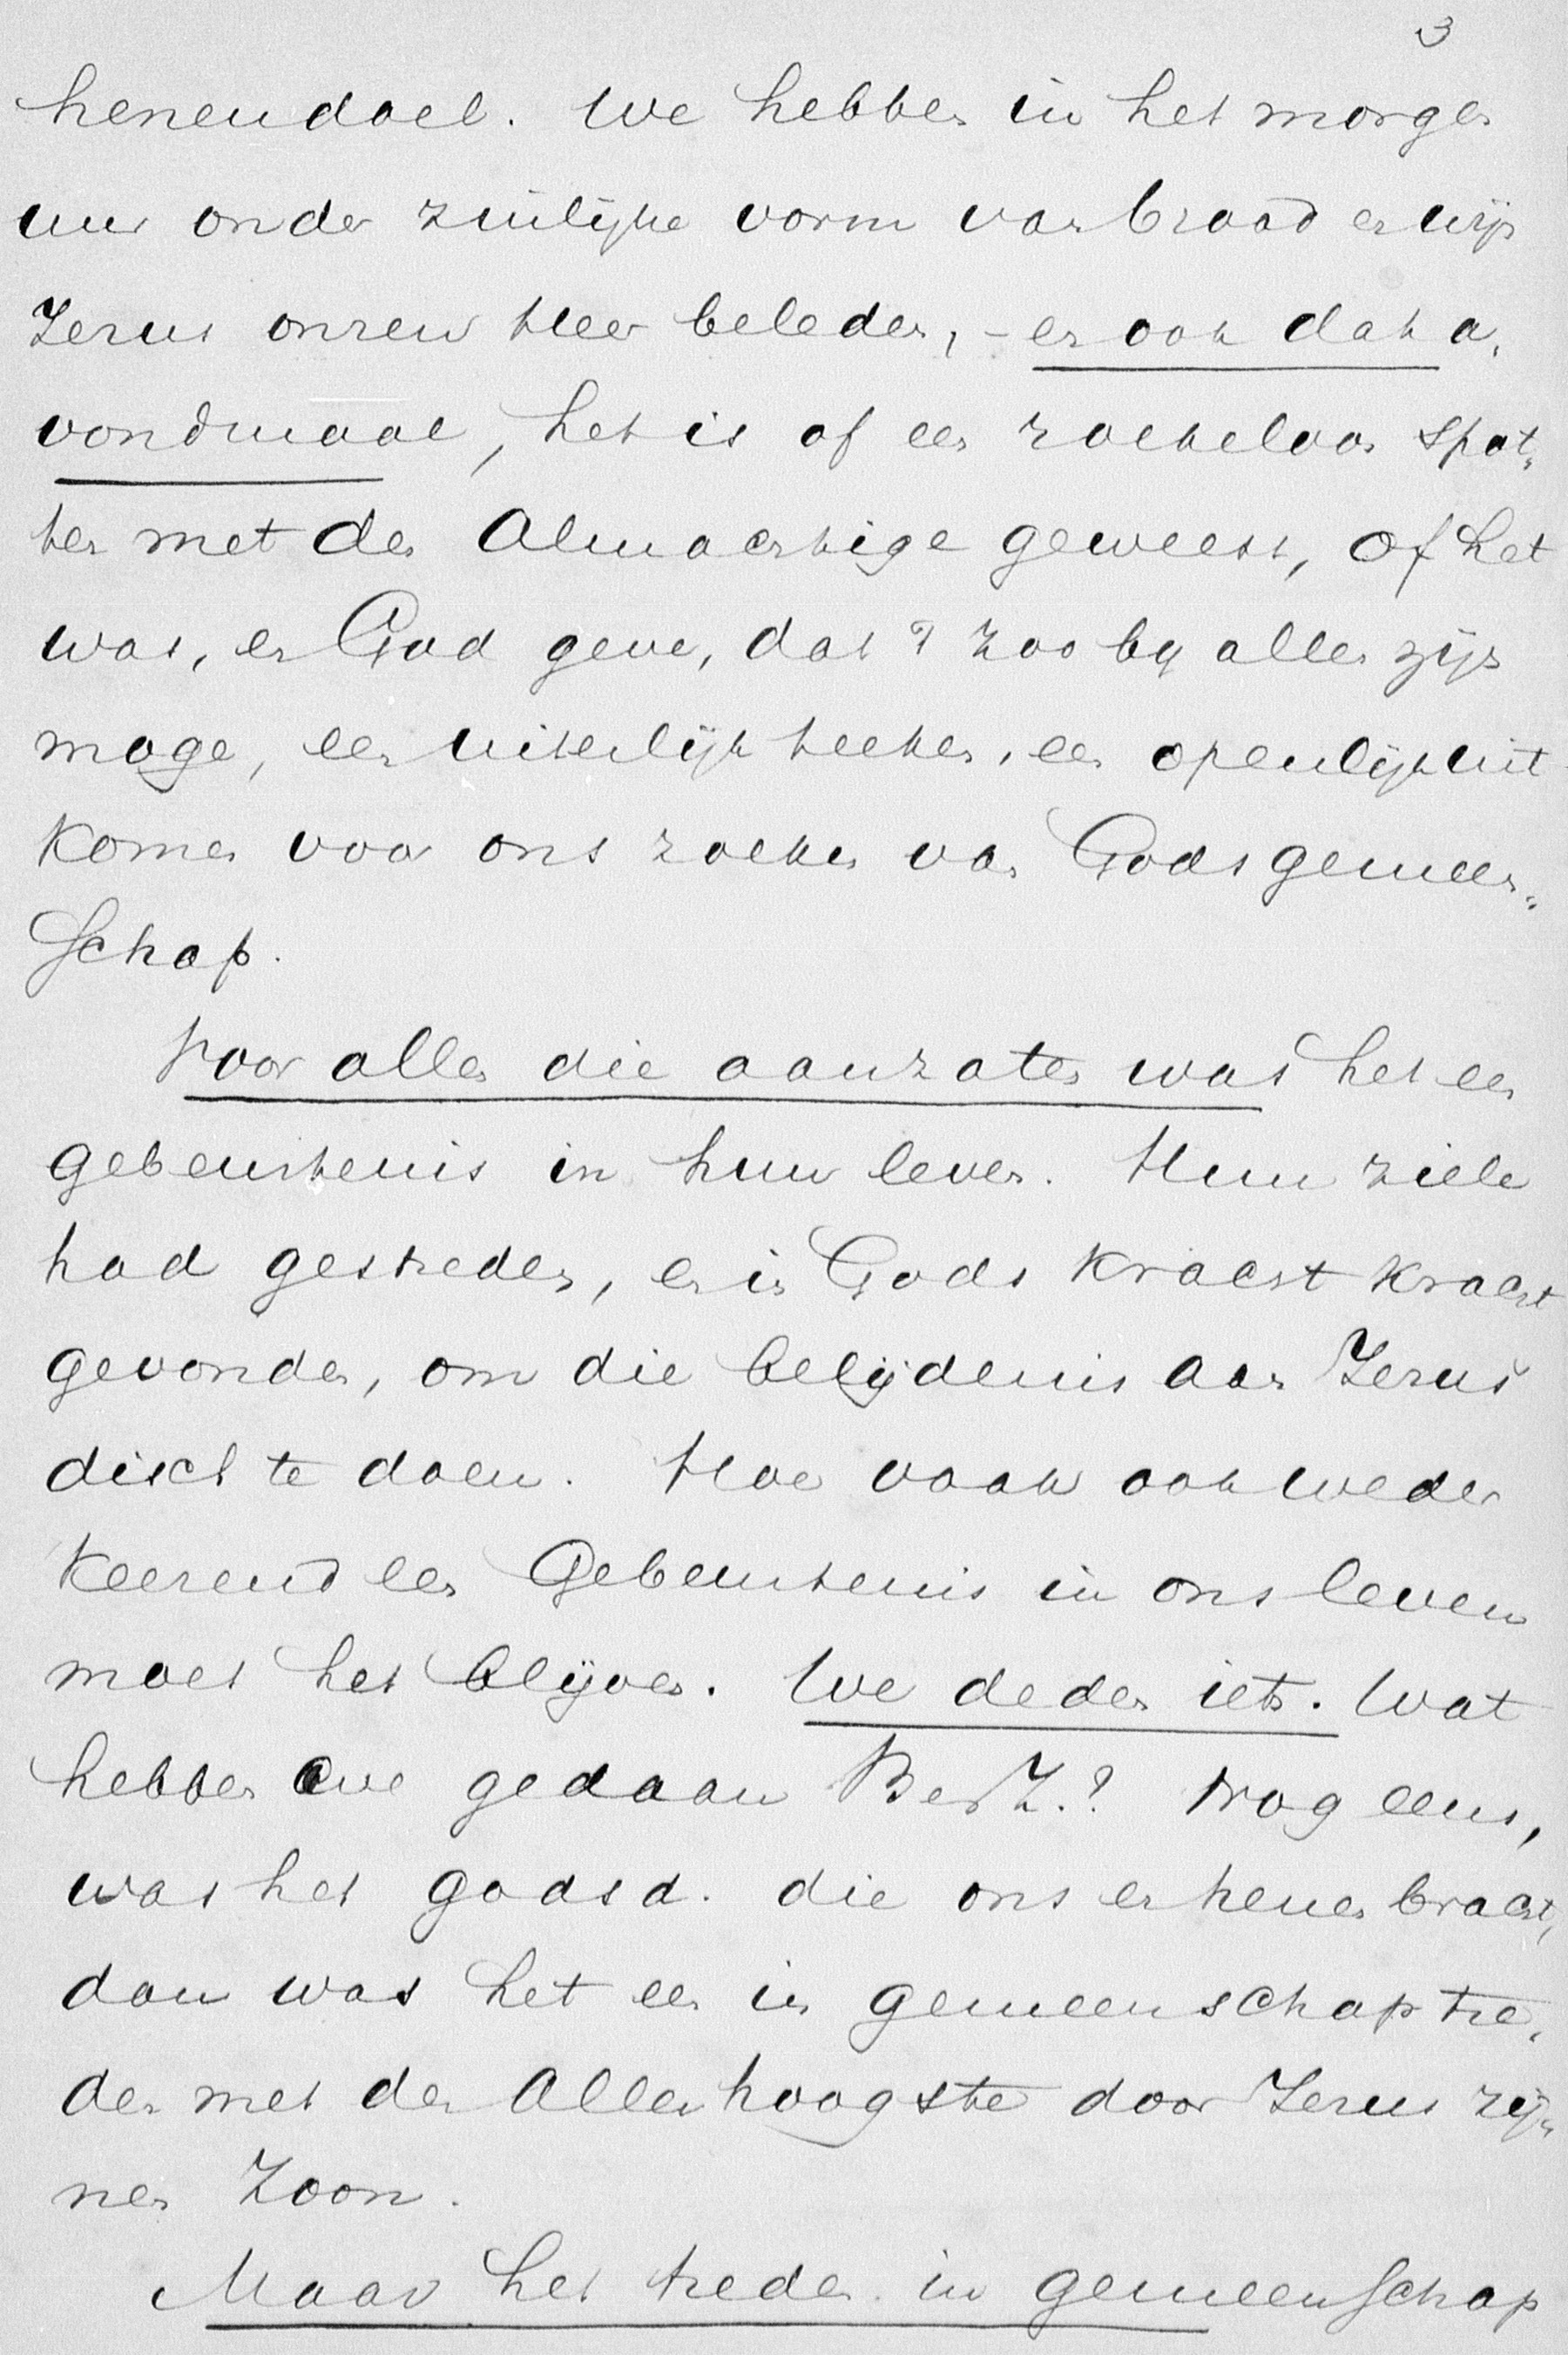 3
henendoel. We hebben in het morgen
uur onder zinlijke vorm van brood en wijn
Jezus onzen Heer beleden, - en ook dat a-
vondmaal, het is of een roekeloos spot-
ten met den Almachtige geweest, of het
was, en God geve, dat 't zoo bij allen zijn
moge, een uiterlijk teeken, een openlijk uit-
komen voor ons zoeken van Gods gemeen-
schap.
Voor allen die aanzaten was het een
gebeurtenis in hun leven. Hun ziele
had gestreden, en in Gods kracht kracht
gevonden, om die belijdenis aan Jezus
disch te doen. Hoe vaak ook weder
keerend een Gebeurtenis in ons leven
moet het blijven. We deden iets. Wat
hebben we gedaan B en Z.? Nog eens,
was het godsd. die ons er henen bracht,
dan was het een in gemeenschap tre-
den met den Allerhoogste door Jezus zij-
nen Zoon.
Maar het treden in gemeenschap